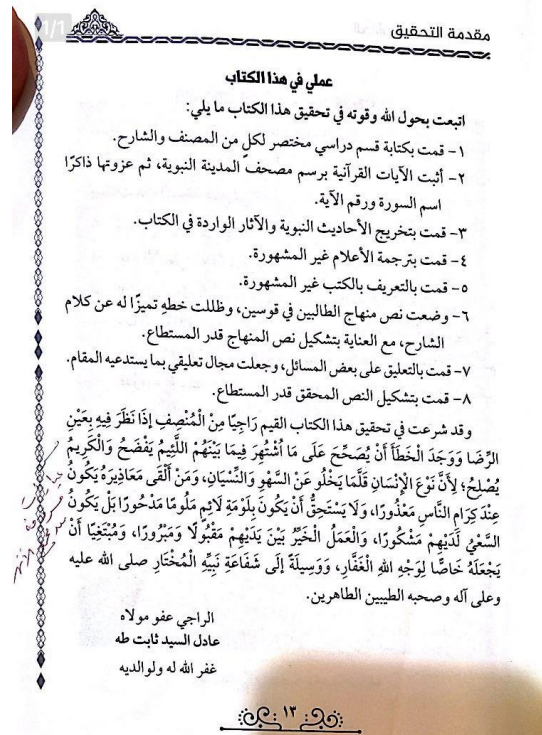 1/1
مقدمة التحقيق
عملي في هذا الكتاب
اتبعت بحول الله وقوته في تحقيق هذا الكتاب ما يلي:
١- قمت بكتابة قسم دراسي مختصر لكل من المصنف والشارح.
٢- أثبت الآيات القرآنية برسم مصحف المدينة النبوية، ثم عزوتها ذاكرًا
اسم السورة ورقم الآية.
٣- قمت بتخريج الأحاديث النبوية والآثار الواردة في الكتاب.
٤- قمت بترجمة الأعلام غير المشهورة.
٥- قمت بالتعريف بالكتب غير المشهورة.
٦- وضعت نص منهاج الطالبين في قوسين، وظللت خطهِ تميزًا له عن كلام
الشارح، مع العناية بتشكيل نص المنهاج قدر المستطاع.
٧- قمت بالتعليق على بعض المسائل، وجعلت مجال تعليقي بما يستدعيه المقام.
٨- قمت بتشكيل النص المحقق قدر المستطاع.
وقد شرعت في تحقيق هذا الكتاب القيم رَاجِيًا مِنْ الْمُنْصِفِ إذَا نَظَرَ فِيهِ بِعَيْنِ
الرِّضَا وَوَجَدَ الْخَطَأَ أَنْ يُصَحِّحَ عَلَى مَا اُشْتُهِرَ فِيمَا بَيْنَهُمْ اللَّئِيمُ يَفْضَحُ وَالْكَرِيمُ
يُصْلِحُ؛ لِأَنَّ نَوْعَ الْإِنْسَانِ قَلَّمَا يَخْلُو عَنْ السَّهْوِ وَالنِّسْيَانِ، وَمَنْ أَلْقَى مَعَاذِيرَهُ يَكُونُ
عِنْدَ كِرَامِ النَّاسِ مَعْذُورًا، وَلَا يَسْتَحِقُّ أَنْ يَكُونَ بِلَوْمَةِ لَائِمٍ مَلُومًا مَدْحُورًا بَلْ يَكُونُ
السَّعْيُ لَدَيْهِمْ مَشْكُورًا، وَالْعَمَلُ الْخَيِّرُ بَيْنَ يَدَيْهِمْ مَقْبُولًا وَمَبْرُورًا، وَمُبْتَغِيًا أَنْ
يَجْعَلَهُ خَاصًّا لِوَجْهِ اللهِ الْغَفَّارِ، وَوَسِيلَةً إلَى شَفَاعَةِ نَبِيِّهِ الْمُخْتَارِ صلى الله عليه
وعلى آله وصحبه الطيبين الطاهرين.
الراجي عفو مولاه
عادل السيد ثابت طه
غفر الله له ولوالديه
١٣